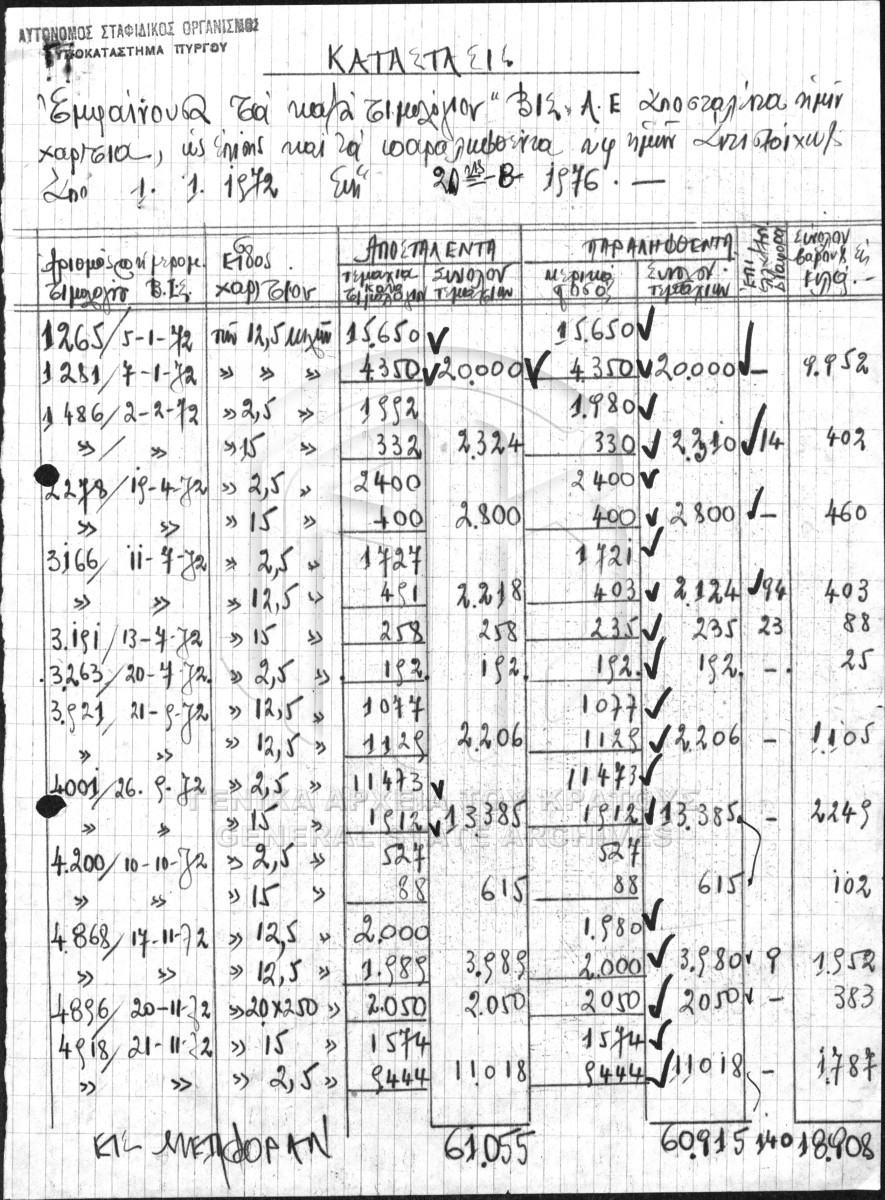 ΑΥΤΟΝΟΜΟΣ ΣΤΑΦΙΔΙΚΟΣ ΟΡΓΑΝΙΣΜΟΣ
ΥΠΟΚΑΤΑΣΤΗΜΑ ΠΥΡΓΟΥ
ΚΑΤΑΣΤΑΣΙΣ
Ἐμφαίνουσα τά κατά τιμολόγιον ΒΙΣ. Α.Ε ἀποσταλέντα ἡμῖν
χαρτσια, ὡς ἐπίσης καί τά παραληφθέντα ὑφ ἡμῶν ἀντιστοίχως
ἀπό 1. 1. 1972 20 8 1976. —
Ἀριθμός ἡμερομ. Εἶδος ΑΠΟΣΤΑΛΕΝΤΑ ΠΑΡΑΛΗΦΘΕΝΤΑ Σύνολον
τιμολογίου ΒΙΣ. χαρτσιου τεμαχια κατα τιμολόγιον Συνολον τεμαχίων μερικα ποσά Συνολον τεμαχίων διαφορα βαρους εἰς κιλά. —
1265/5-1-72 τῶν 12,5 κιλῶν 15.650 15.650
1281/7-1-72 » » » 4.350 20.000 4.350 20.000 — 9.952
1486/2-2-72 » 2,5 » 1992 1.980
»/ » » 15 » 332 2.324 330 2.310 14 402
2278/19-4-72 » 2,5 » 2400 2400
» » » 15 » 400 2.800 400 2800 — 460
3166/11-7-72 » 2,5 » 1727 1721
» » » 12,5 » 491 2.218 403 2.124 94 403
3.191/13-7-72 » 15 » 258 258 235 235 23 88
3.263/20-7-72 » 2,5 » 192 192 192 192 — 25
3.921/21-9-72 » 12,5 » 1077 1077
» » » 12,5 » 1129 2.206 1129 2.206 — 1.105
4001/26.9-72 » 2,5 » 11473 11473
» » » 15 » 1912 13.385 1912 13.385 - 2249
4.200/10-10-72 » 2,5 » 527 527
» » » 15 » 88 615 88 615 102
4.868/17-11-72 » 12,5 » 2.000 1.980
» » » 12,5 » 1.989 3.989 2.000 3.980 9 1.952
4896/20-11-72 » 20×250 » 2.050 2.050 2050 2050 - 383
4918/21-11-72 » 15 » 1574 1574
» » » 2,5 » 9444 11.018 9444 11018 — 1.787
ΕΙΣ ΜΕΤΑΦΟΡΑΝ 61.055 60.915 140 18.908
ΓΕΝΙΚΑ ΑΡΧΕΙΑ ΤΟΥ ΚΡΑΤΟΥΣ
GENERAL STATE ARCHIVES